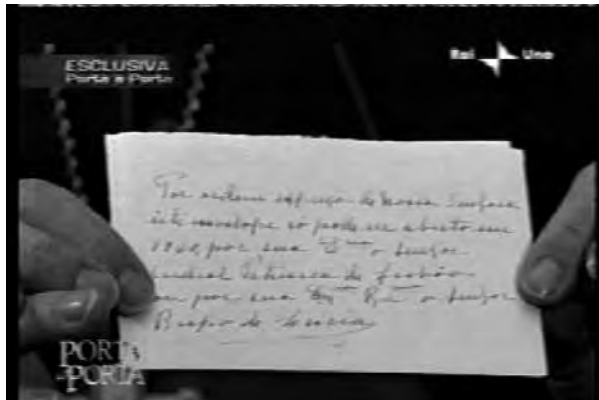 ESCLUSIVA
Porta a Porta
Rai Uno
Por ordem expressa de Nossa Senhora
este envelope só pode ser aberto em
1960, por sua Em.ª o Senhor
Cardeal Patriarca de Lisboa
ou por sua Ex.ª Rev.ª o Senhor
Bispo de Leiria
PORTA
-PORTA